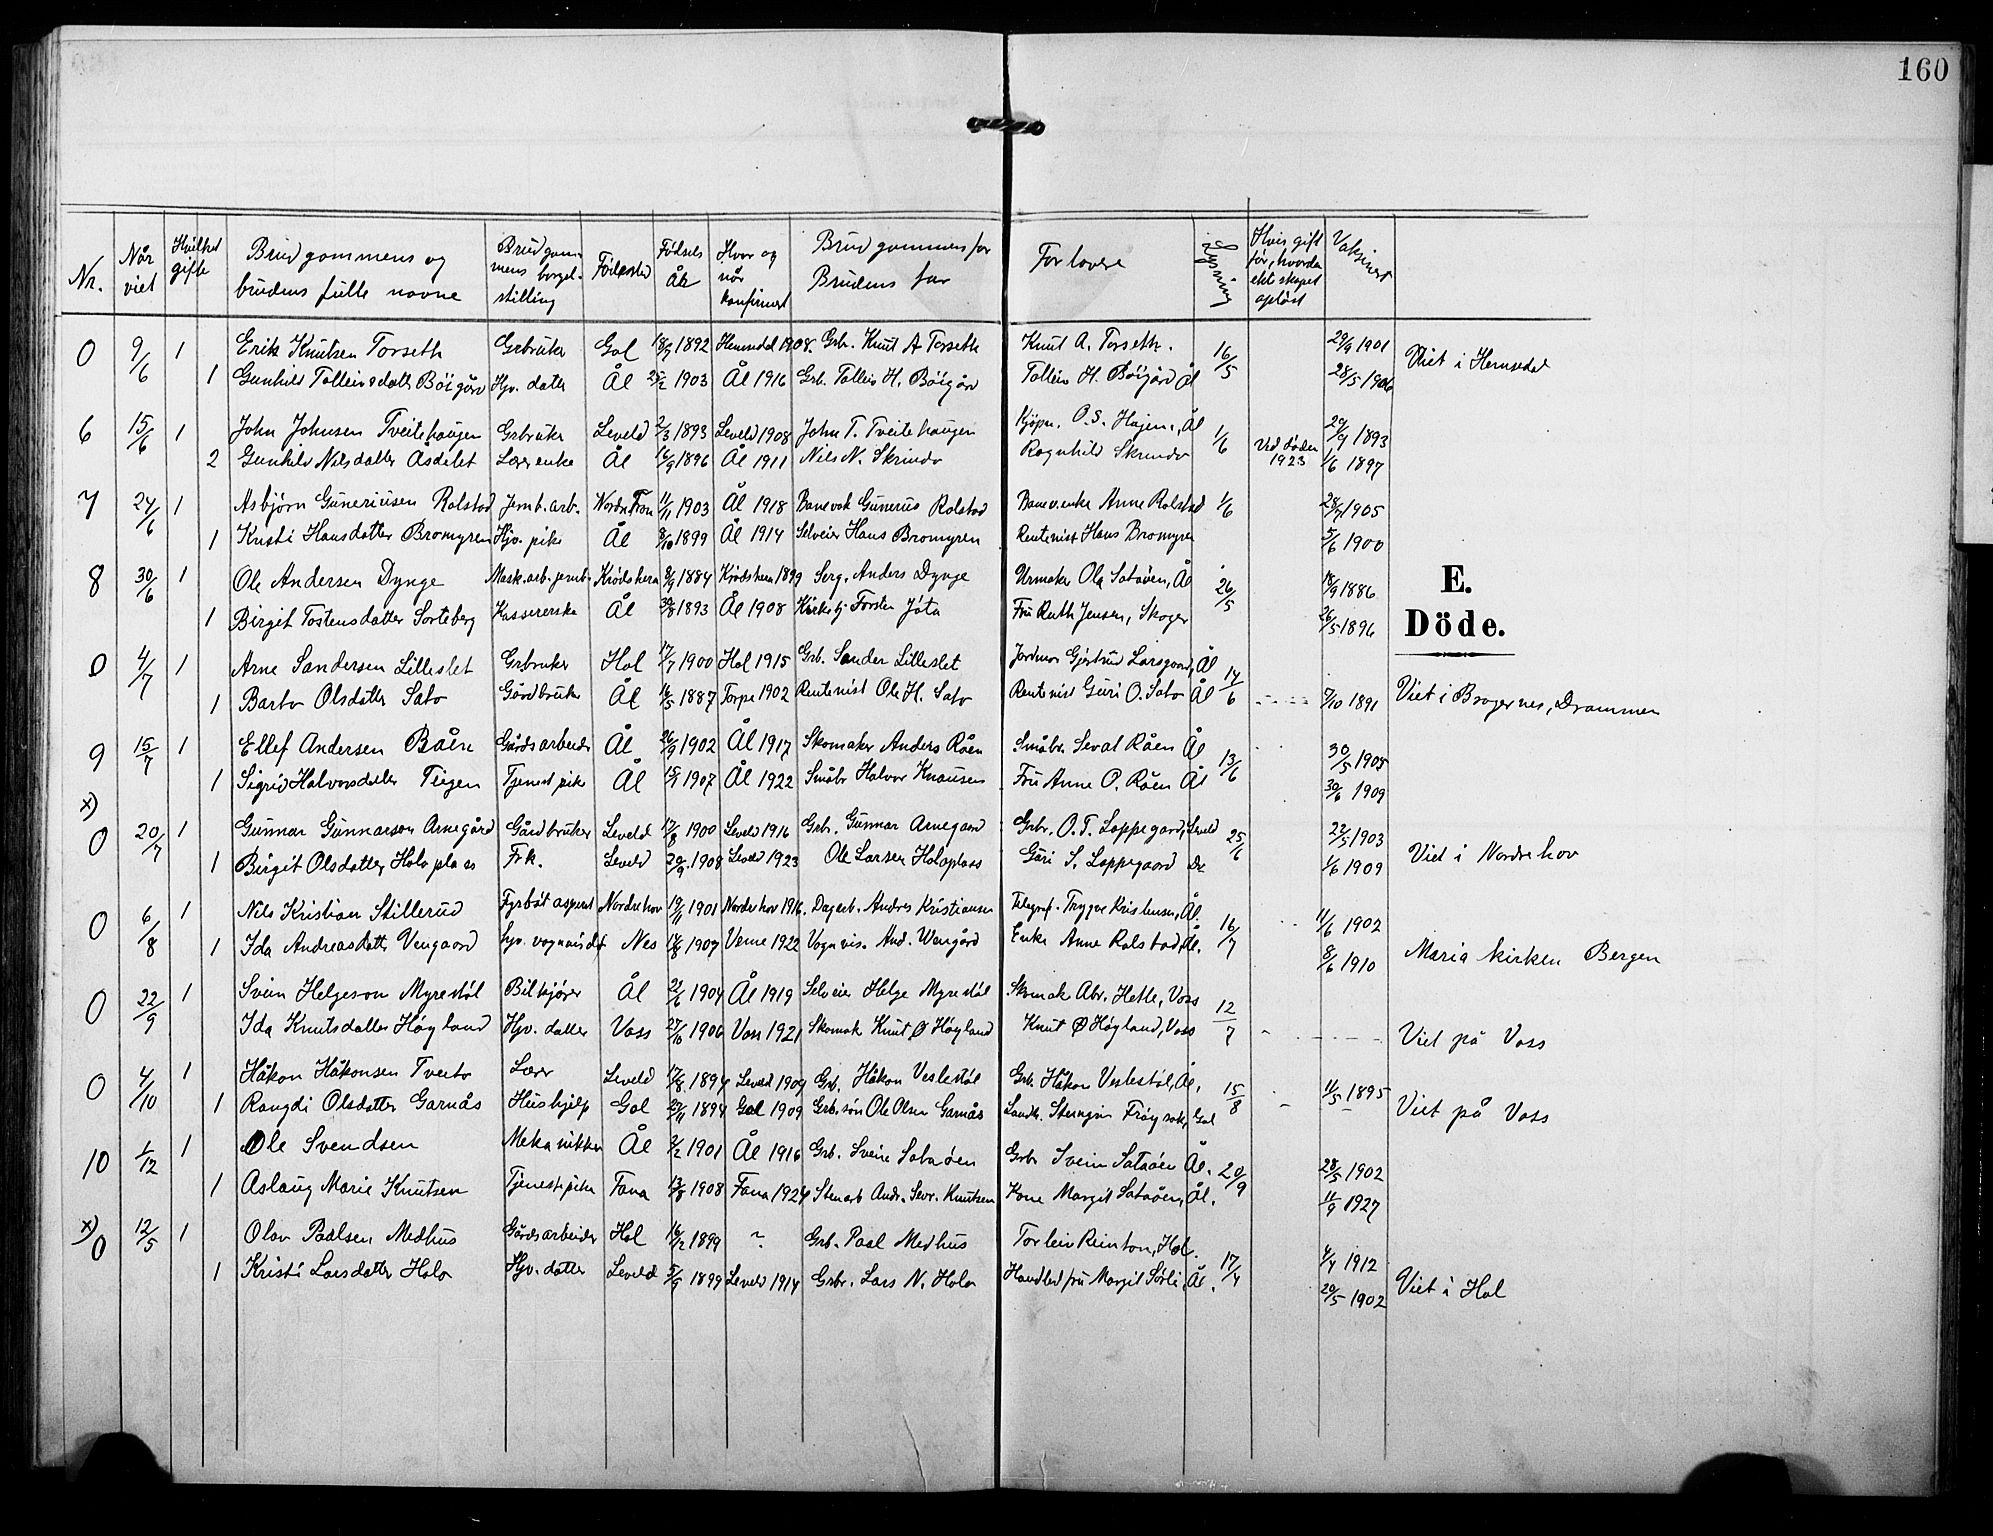 160
Nr. Når viet Hvilket gifte Brudgommens og brudens fulle navne Brudgommens borgel. stilling Födested Födsels År Hvor og når konfirmert Brudgommens far Brudens far Forlovere Lysning Hvis gift för, hvordan ekteskapet oplöst Vaksinert
0 9/6 1 Erik Knutsen Torseth Grbruker Gol 18/9 1892 Hemsedal 1908. Grb. Knut A Torseth Knut A. Torseth. 16/5 29/9 1901 Viet i Hemsedal
1 Gunhild Tolleivsdatter Böigård Hjv. datter Ål 25/2 1903 Ål 1916 Grb. Tolleiv H. Böigård Tolleiv H. Böigård Ål 28/5 1906
6 15/6 1 John Johnsen Tveitehaugen Grbruker Leveld 2/3 1893 Leveld 1908 John T. Tveitehaugen Kjöpm. O.S. Hagen, Ål 1/6 29/9 1893
2 Gunhild Nilsdatter Åsdelet Lærerenke Ål 16/9 1896 Ål 1911 Nils N. Skrindo Ragnhild Skrindo Ved döden 1923 1/6 1897
7 24/6 1 Asbjörn Guneriusen Rolstad Jernb.arb. Nordre Fron 11/11 1903 Ål 1918 Banevok Gunerius Rolstad Banev.enke Anne Rolstad 1/6 28/7 1905
1 Kristi Hansdatter Bromyren Hjv. pike Ål 8/10 1899 Ål 1914 Selveier Hans Bromyren Rentenist Hans Bromyren 5/6 1900
8 30/6 1 Ole Andersen Dynge Mask.arb. jernb. Krödshera 9/9 1884 Krödshera 1899 Serg. Anders Dynge Urmaker Ola Sataöen, Ål 26/5 18/9 1886
1 Birgit Tostensdatter Sorteberg Kassererske Ål 30/8 1893 Ål 1908 Kirketj. Torsten Jota Fru Ruth Jensen, Skoger 26/5 1896
E.
Döde.
0 4/7 1 Arne Sandersen Lilleslet Grbruker Hol 17/7 1900 Hol 1915 Grb. Sander Lilleslet Jordmor Gjertrud Larsgaard, Ål 14/6
1 Barbo Olsdatter Sato Gårdbruker Ål 16/5 1887 Torpe 1902 Rentenist Ole H. Sato Rentenist Guri O. Sato Ål 7/10 1891 Viet i Bragernes, Drammen
9 15/7 1 Ellef Andersen Råen Gårdsarbeider Ål 26/9 1902 Ål 1917 Skomaker Anders Råen Småbr. Seval Råen Ål 13/6 30/5 1905
1 Sigrid Halvorsdatter Teigen Tjenestpike Ål 15/9 1907 Ål 1922 Småbr Halvor Knausen Fru Anne O. Råen Ål 30/6 1909
x) 0 20/7 1 Gunnar Gunnarson Arnegård Gårdbruker Leveld 17/8 1900 Leveld 1916 Grb. Gunnar Arnegaard Grbr. O.T. Loppegard, Leveld 25/6 22/5 1903 Viet i Norderhov
1 Birgit Olsdatter Holoplass Frk. Leveld 20/9. 1908 Leveld 1923 Ole Larsen Holoplass Guri S. Loppegaard Do 1/6 1909
0 6/8 1 Nils Kristian Stillerud Fyrböt aspirant Norderhov 19/11 1901 Norderhov 1916. Dagarb. Andres Kristiansen Telegraf. Trygve Kristensen, Ål. 16/7 11/6 1902
1 Ida Andreasdatter Vengaard hjv. vognmdtr Nes 17/8 1907 Veme 1922 Vognvis. And. Wengård Enke Anne Rolstad, Ål. 8/6 1910 Maria kirken Bergen
0 22/9 1 Svein Helgeson Myrestöl Bilkjører Ål 22/6 1904 Ål 1919 Selveier Helge Myrestöl Skomak Abr. Helle, Voss 12/7
Ida Knutsdatter Høyland Hjv. datter Voss 27/10 1906 Voss 1921 Skomak Knut Ø Høyland Knut Ø Høyland, Voss Viet på Voss
0 4/10 1 Håkon Håkonsen Tveito Lærer Leveld 17/8 1894 Leveld 1909 Grb. Håkon Veslestöl Grb. Håkon Veslestöl, Ål. 15/8 11/5 1895
1 Rangdi Olsdatter Garnås Hushjelp Gol 29/11 1894 Gol 1909 Grb.sön Ole Olsen Garnås Landh. Steingrim Fröysok, Gol Viet på Voss
10 1/12 1 Ole Svendsen Mekanikker Ål 2/2 1901 Ål 1916 Grb. Svein Sataöen Grb. Svein Sataöen Ål. 20/9 28/5 1902
1 Aslaug Marie Knutsen Tjenestepike Fana 13/8 1908 Fana 1924 Stenarb Andr. Sevr. Knutsen Kone Margit Sataöen, Ål. 11/9 1927
x) 0 12/5 1 Olav Paalsen Medhus Gårdsarbeider Hol 16/2 1899 ~ Grb. Paal Medhus Torleiv Reinton, Hol. 17/4 4/4 1912
1 Kristi Larsdatter Holo Hjv. datter Leveld 5/9 1899 Leveld 1914 Grbr. Lars N. Holo Handledfru Margit Sørli, Ål. 20/5 1902 Viet i Hol